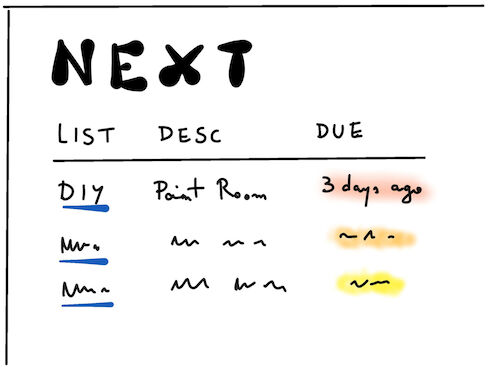 NEXT
LIST DESC DUE
DIY Paint Room 3 days ago